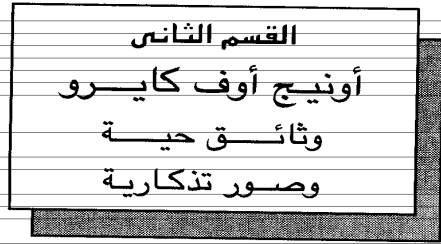 القسم الثانى
أونيج أوف كايرو
وثائق حية
وصور تذكارية